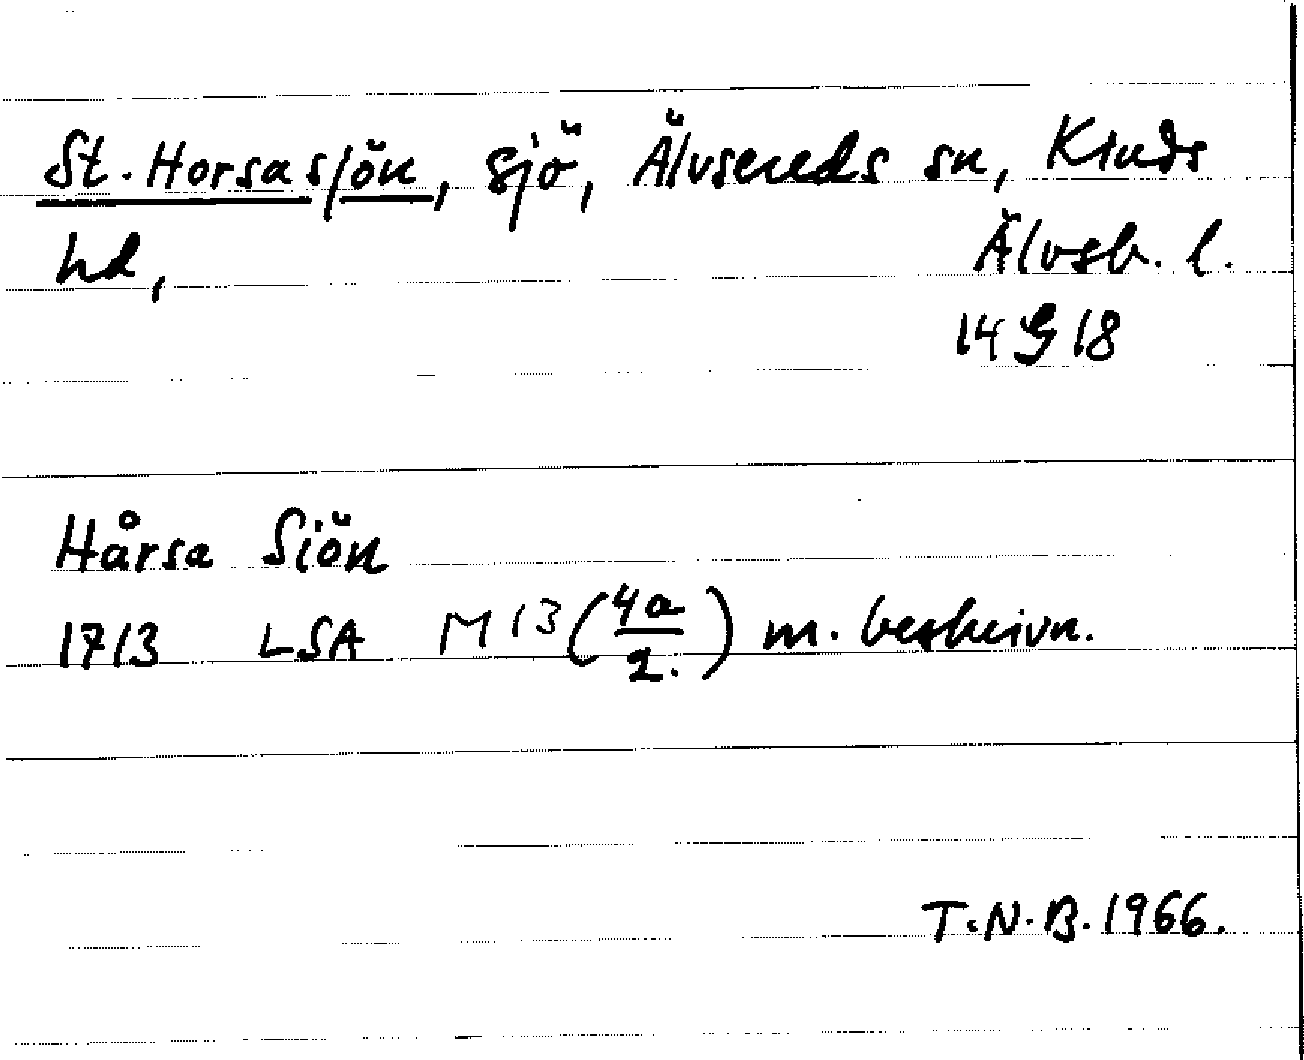 St. Horsasjön, sjö, Älvsereds sn, Kinds
hd, Älvsb. l.
14 G 18
Hårsa Siön
1713 LSA M13 (4a/2.) m. beskrivn.
T.N.B. 1966.